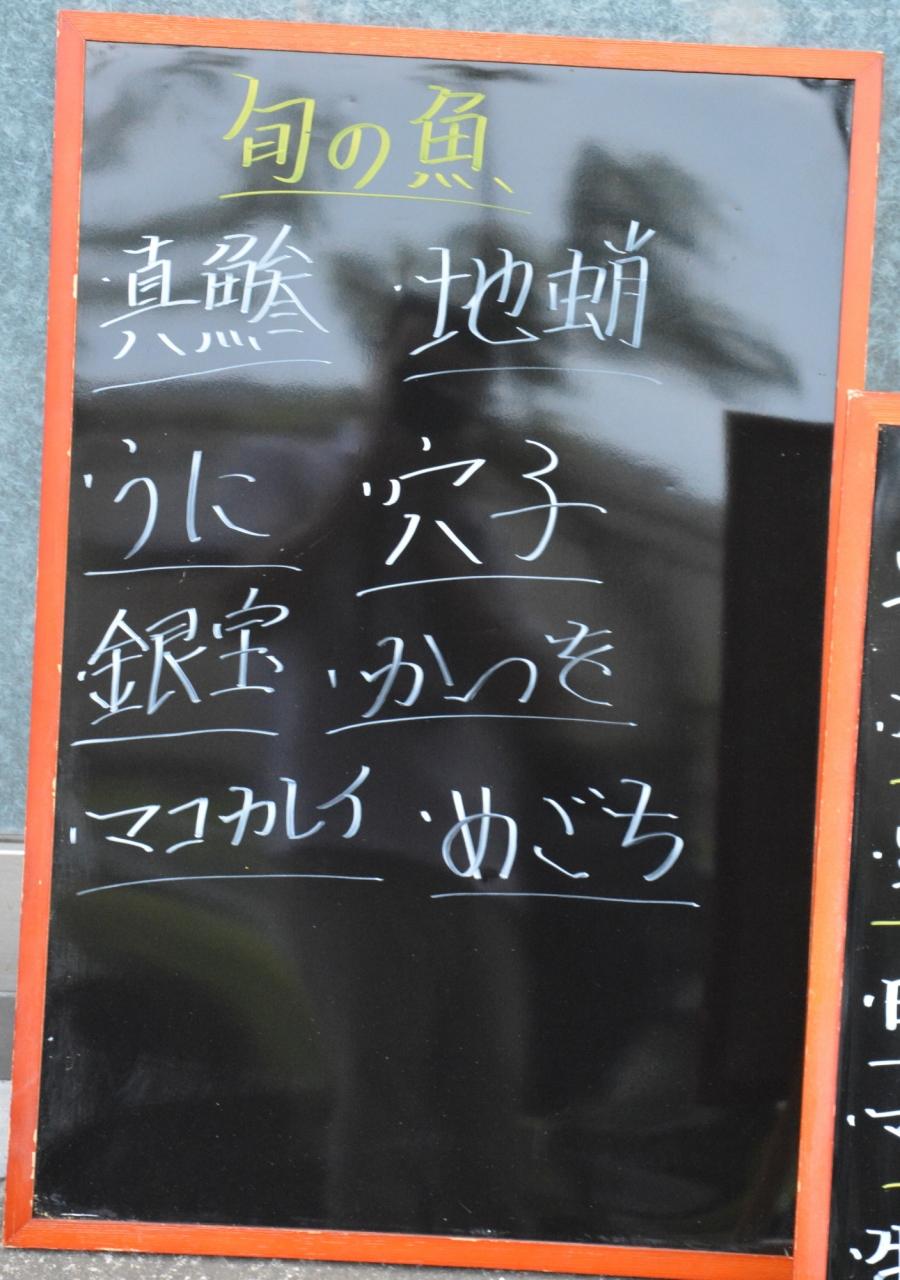 旬の魚
・真鯵 ・地蛸
・うに ・穴子
・銀宝 ・かつを
・マコカレイ ・めごち